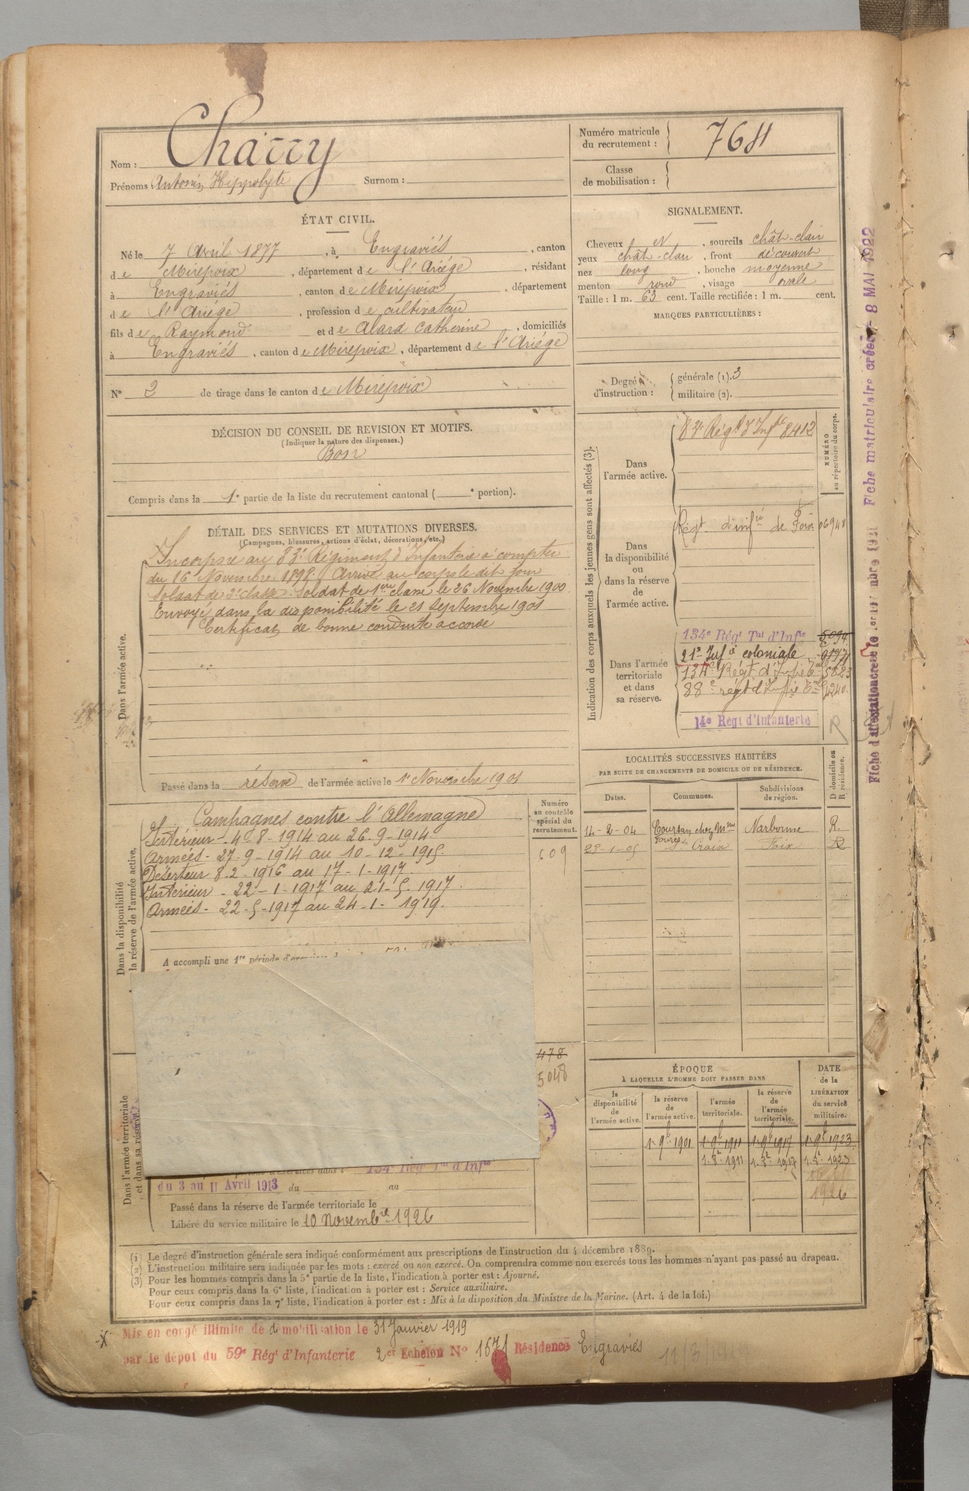 Nom : Charry
Prénoms : Antonin Hippolyte Surnom :
Numéro matricule du recrutement : 768
Classe de mobilisation :
ÉTAT CIVIL.
Né le 7 Avril 1877, à Engraviés, canton
de Mirepoix, département de l'Ariége, résidant
à Engraviés, canton de Mirepoix, département
de l'Ariége, profession de cultivateur
fils de Raymond et de Alard Catherine, domiciliés
à Engraviés, canton de Mirepoix, département de l'Ariége
N° 2 de tirage dans le canton de Mirepoix
SIGNALEMENT.
Cheveux N, sourcils chât-clair
yeux chât-clair, front découvert
nez long, bouche moyenne
menton rond, visage ovale
Taille : 1 m. 63 cent. Taille rectifiée : 1 m. cent.
MARQUES PARTICULIÈRES :
Degré d'instruction : générale (1). 3
militaire (2).
DÉCISION DU CONSEIL DE REVISION ET MOTIFS.
(Indiquer la nature des dispenses.)
Bon
Compris dans la 1e partie de la liste du recrutement cantonal ( e portion).
DÉTAIL DES SERVICES ET MUTATIONS DIVERSES.
(Campagnes, blessures, actions d'éclat, décorations, etc.)
Dans l'armée active.
Incorporé au 83e Régiment d'Infanterie à compter
du 16 Novembre 1898. Arrivé au corps le dit jour
soldat de 2e classe. Soldat de 1ère classe le 26 Novembre 1900
Envoyé dans la disponibilité le 21 Septembre 1901
Certificat de bonne conduite accordé
Passé dans la réserve de l'armée active le 1er Novembre 1901
Indication des corps auxquels les jeunes gens sont affectés (3).
NUMÉRO au répertoire du corps.
Dans l'armée active.
83e Régt d'Infie 8412
Dans la disponibilité ou dans la réserve de l'armée active.
Régt d'infie de Foix 06948
Dans l'armée territoriale et dans sa réserve.
134e Régt Tal d'Infie
21e Infie coloniale
134e Régt d'Infie Tle
88e régt d'Infie Tle
14e Régt d'Infanterie
R
LOCALITÉS SUCCESSIVES HABITÉES
PAR SUITE DE CHANGEMENTS DE DOMICILE OU DE RÉSIDENCE.
D domicile ou R résidence.
Dates. Communes. Subdivisions de région.
14-2-04 Coursan chez Mme Narbonne R
Foix
Dans la disponibilité
la réserve de l'armée active.
Numéro au contrôle spécial du recrutement.
609
Campagnes contre l'Allemagne
Intérieur - 4-8-1914 au 26-9-1914
Armées - 27-9-1914 au 10-12-1915
Déserteur 8-2-1916 au 17-1-1917
Intérieur - 22-1-1917 au 21-5-1917
Armées - 22-5-1917 au 24-1-1919.
A accompli une 1re période d'exercices
478
5048
Dans l'armée territoriale et dans sa réserve
134e Régt Tal d'Infie
du 3 au 11 Avril 1913 du au
Passé dans la réserve de l'armée territoriale le
Libéré du service militaire le 10 Novembre 1926
ÉPOQUE
À LAQUELLE L'HOMME DOIT PASSER DANS
DATE de la LIBÉRATION du service militaire.
la disponibilité de l'armée active.
la réserve de l'armée active.
l'armée territoriale.
la réserve de l'armée territoriale.
1 9bre 1901 1 9bre 1911 1 9bre 1917 1 9bre 1923
1926
(1) Le degré d'instruction générale sera indiqué conformément aux prescriptions de l'instruction du 4 décembre 1889.
(2) L'instruction militaire sera indiquée par les mots : exercé ou non exercé. On comprendra comme non exercés tous les hommes n'ayant pas passé au drapeau.
(3) Pour les hommes compris dans la 5e partie de la liste, l'indication à porter est : Ajourné.
Pour ceux compris dans la 6e liste, l'indication à porter est : Service auxiliaire.
Pour ceux compris dans la 7e liste, l'indication à porter est : Mis à la disposition du Ministre de la Marine. (Art. 4 de la loi.)
Mis en congé illimité de démobilisation le 31 Janvier 1919
par le dépôt du 59e Régt d'Infanterie 2er Echelon N° 1671 Résidence Engraviés
Fiche matriculaire créée - 8 MAI 1922